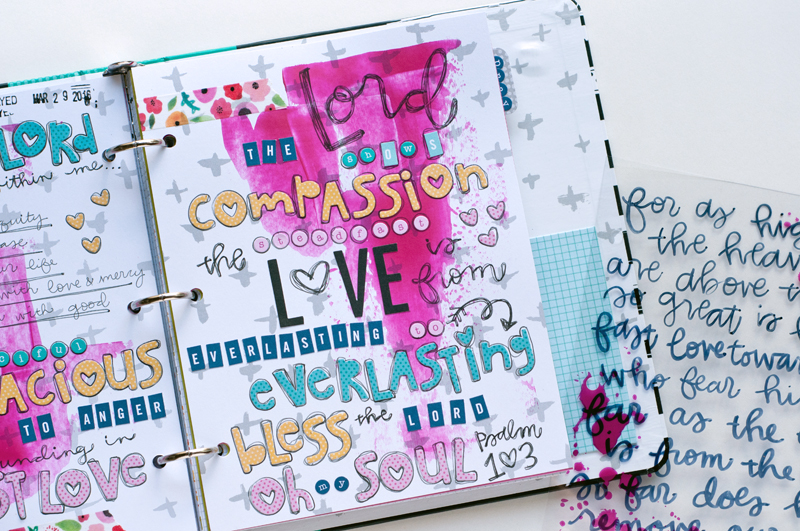 YED MAR 2 9 2016
LORD
within me...
iquity
ease
ur life
with love & mercy
with good
ciful
acious
TO ANGER
unding in
ST LOVE
Lord
THE shows
compassion
the steadfast
LOVE is from
EVERLASTING to
everLASTing
bless the LORD
oh my SOUL
Psalm
103
for as hig
the heav
are above t
so great is h
fast love towar
who fear hi
far as the
is from the
so far does h
remove